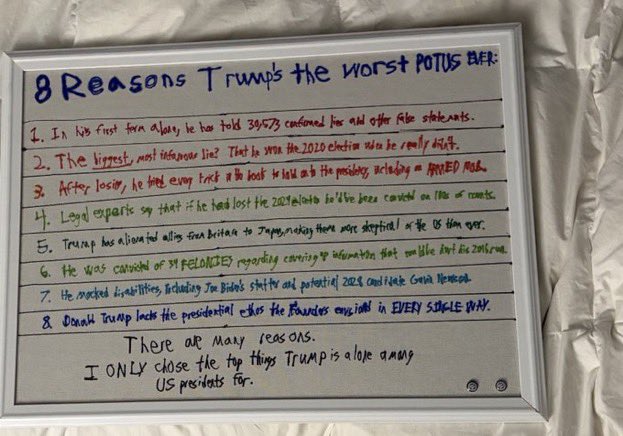 8 Reasons Trump's the worst POTUS EVER:
1. In his first term alone, he has told 30,573 confirmed lies and other false statements.
2. The biggest, most infamous lie? That he won the 2020 election when he really didn't.
3. After losing, he tried every trick in the book to hold onto the presidency, including an ARMED MOB.
4. Legal experts say that if he had lost the 2024 election he'd be been convicted on of counts.
5. Trump has alienated allies from Britain to Japan, making them more skeptical of the US than ever.
6. He was convicted of 34 FELONIES regarding covering up information that could be hurt his 2016 run.
7. He mocked disabilities, including Joe Biden's stutter and potential 2028 candidate Gavin Newsom.
8. Donald Trump lacks the presidential ethos the Founders envisioned in EVERY SINGLE WAY.
There are many reasons.
I ONLY chose the top things Trump is alone among
US presidents for.